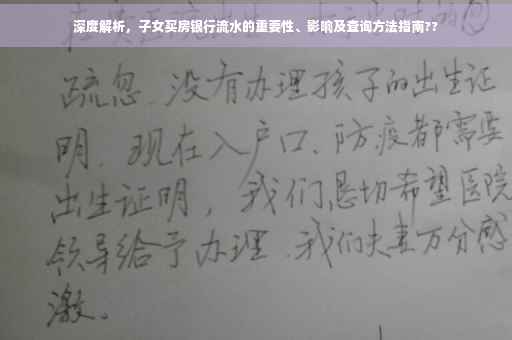 深度解析，子女买房银行流水的重要性、影响及查询方法指南??
疏忽.没有办理孩子的出生证
明.现在入户口、防疫都需要
出生证明，我们恳切希望医院
领导给予办理.我们夫妻万分感
激。